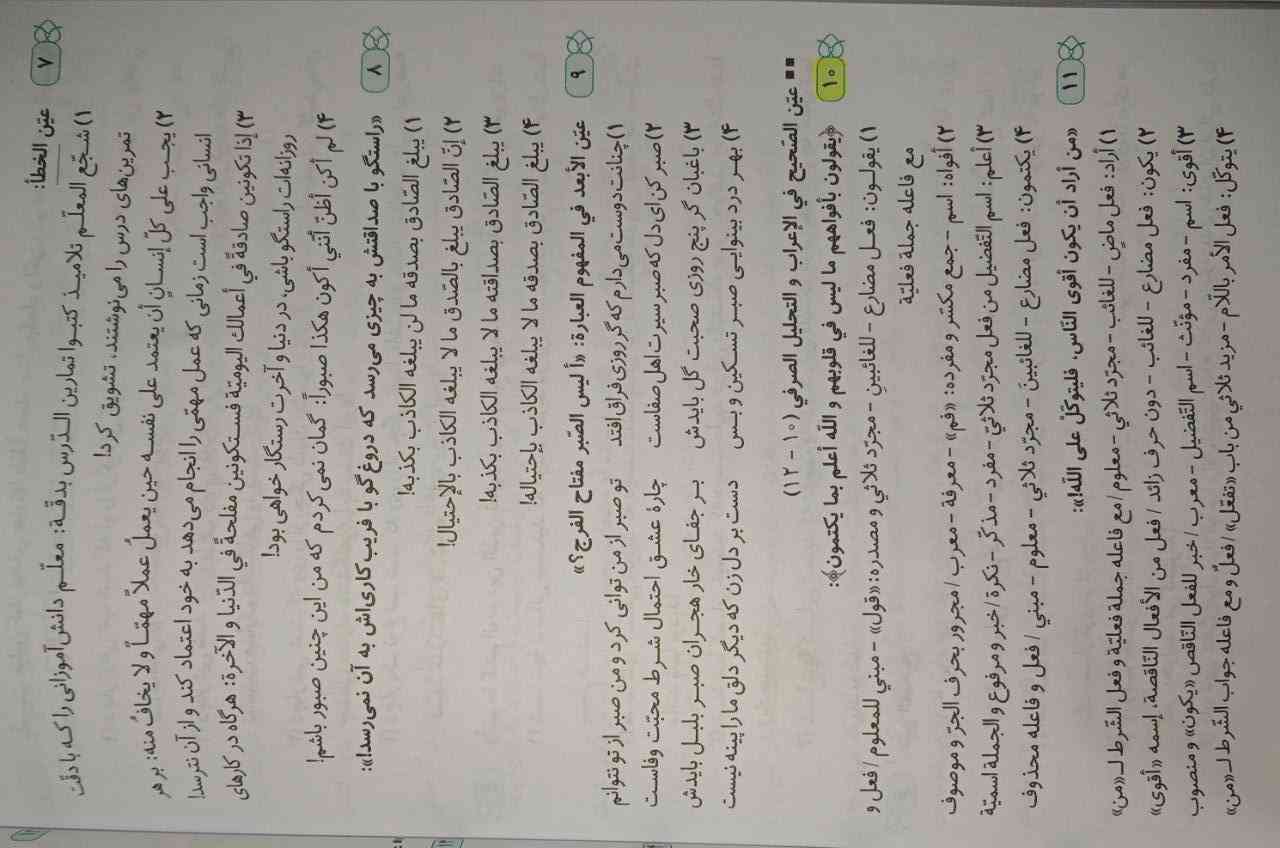 ۷
عيّن الخطأ:
۱) شجّع المعلّم تلاميـذ كتبـوا تمارين الـدّرس بدقـة: معلّـم دانش‌آموزانی را کـه با دقّت
تمرین‌های درس را می‌نوشتند، تشویق کرد!
۲) يجـب على كلّ إنسـانٍ أن يعتمـد على نفسـه حين يعملُ عملاً مهمّـاً و لا يخافُ منه: بر هر
انسانی واجب است زمانی که عمل مهمّی را انجام می‌دهد به خود اعتماد کند و از آن نترسد!
۳) إذا تكونين صادقةً في أعمالك اليوميّة فسـتكونين مفلحةً في الدّنيا و الآخرة: هرگاه در کارهای
روزانه‌ات راستگو باشی، در دنیا و آخرت رستگار خواهی بود!
۴) لم أكن أظنّ أنّني أكون هكذا صبوراً: گمان نمی‌کردم که من این چنین صبور باشم!
۸
«راستگو با صداقتش به چیزی می‌رسد که دروغ‌گو با فریب‌کاری‌اش به آن نمی‌رسد!»:
۱) يبلغ الصّادق بصدقه ما لن يبلغه الكاذب بكذبه!
۲) إنّ الصّادق يبلغ بالصّدق ما لا يبلغه الكاذب بالاحتيال!
۳) يبلغ الصّادق بصداقته ما لا يبلغه الكاذب بكذبه!
۴) يبلغ الصّادق بصدقه ما لا يبلغه الكاذب باحتياله!
۹
عيّن الأبعد في المفهوم العبارة: «أ ليس الصّبر مفتاح الفرج؟»
۱) چنانت دوست می‌دارم که گر روزی فراق افتد تو صبر از من توانی کرد و من صبر از تو نتوانم
۲) صبر کن ای دل که صبر سیرت اهل صفاست چاره عشـق احتمال شـرط محبّت وفاست
۳) باغبان گر پنج روزی صحبت گل بایدش بـر جفـای خار هجـران صبـر بلبـل بایدش
۴) بهـر درد بینوایـی صبـر تسـکین و بـس دست بر دل زن که دیگر دلق ما را پینه نیست
■■ عيّن الصّحيح في الإعراب و التحليل الصرفي (۱۰ - ۱۲)
۱۰
﴿يقولون بأفواههم ما ليس في قلوبهم و الله أعلم بما يكتمون﴾:
۱) يقولـون: فعـل مضارع - للغائبينَ - مجرّد ثلاثي و مصدره: «قول» - مبني للمعلوم / فعل و
مع فاعله جملة فعليّة
۲) أفواه: اسم - جمع مكسّر و مفرده: «فم» - معرفة - معرب / مجرور بحرف الجرّ و موصوف
۳) أعلم: اسم التّفضيل من فعل مجرّد ثلاثيّ - مفرد - مذكّر - نكرة / خبر و مرفوع و الجملة اسميّة
۴) يكتمون: فعل مضارع - للغائبينَ - مجرّد ثلاثي - معلوم - مبني / فعل و فاعله محذوف
۱۱
«من أراد أن يكون أقوى النّاس، فليتوكّل على الله!»:
۱) أراد: فعل ماضٍ - للغائب - مجرّد ثلاثي - معلوم / مع فاعله جملة فعليّة و فعل الشّرط لـ «من»
۲) يكون: فعل مضارع - للغائب - دون حرف زائد / فعل من الأفعال النّاقصة، إسمه «أقوى»
۳) أقوى: اسم - مفرد - مؤنّث - اسم التّفضيل - معرب / خبر للفعل النّاقص «يكون» و منصوب
۴) يتوكّل: فعل الأمر باللّام - مزيد ثلاثي من باب «تفعّل» / فعلٌ و مع فاعله جواب الشّرط لـ «من»